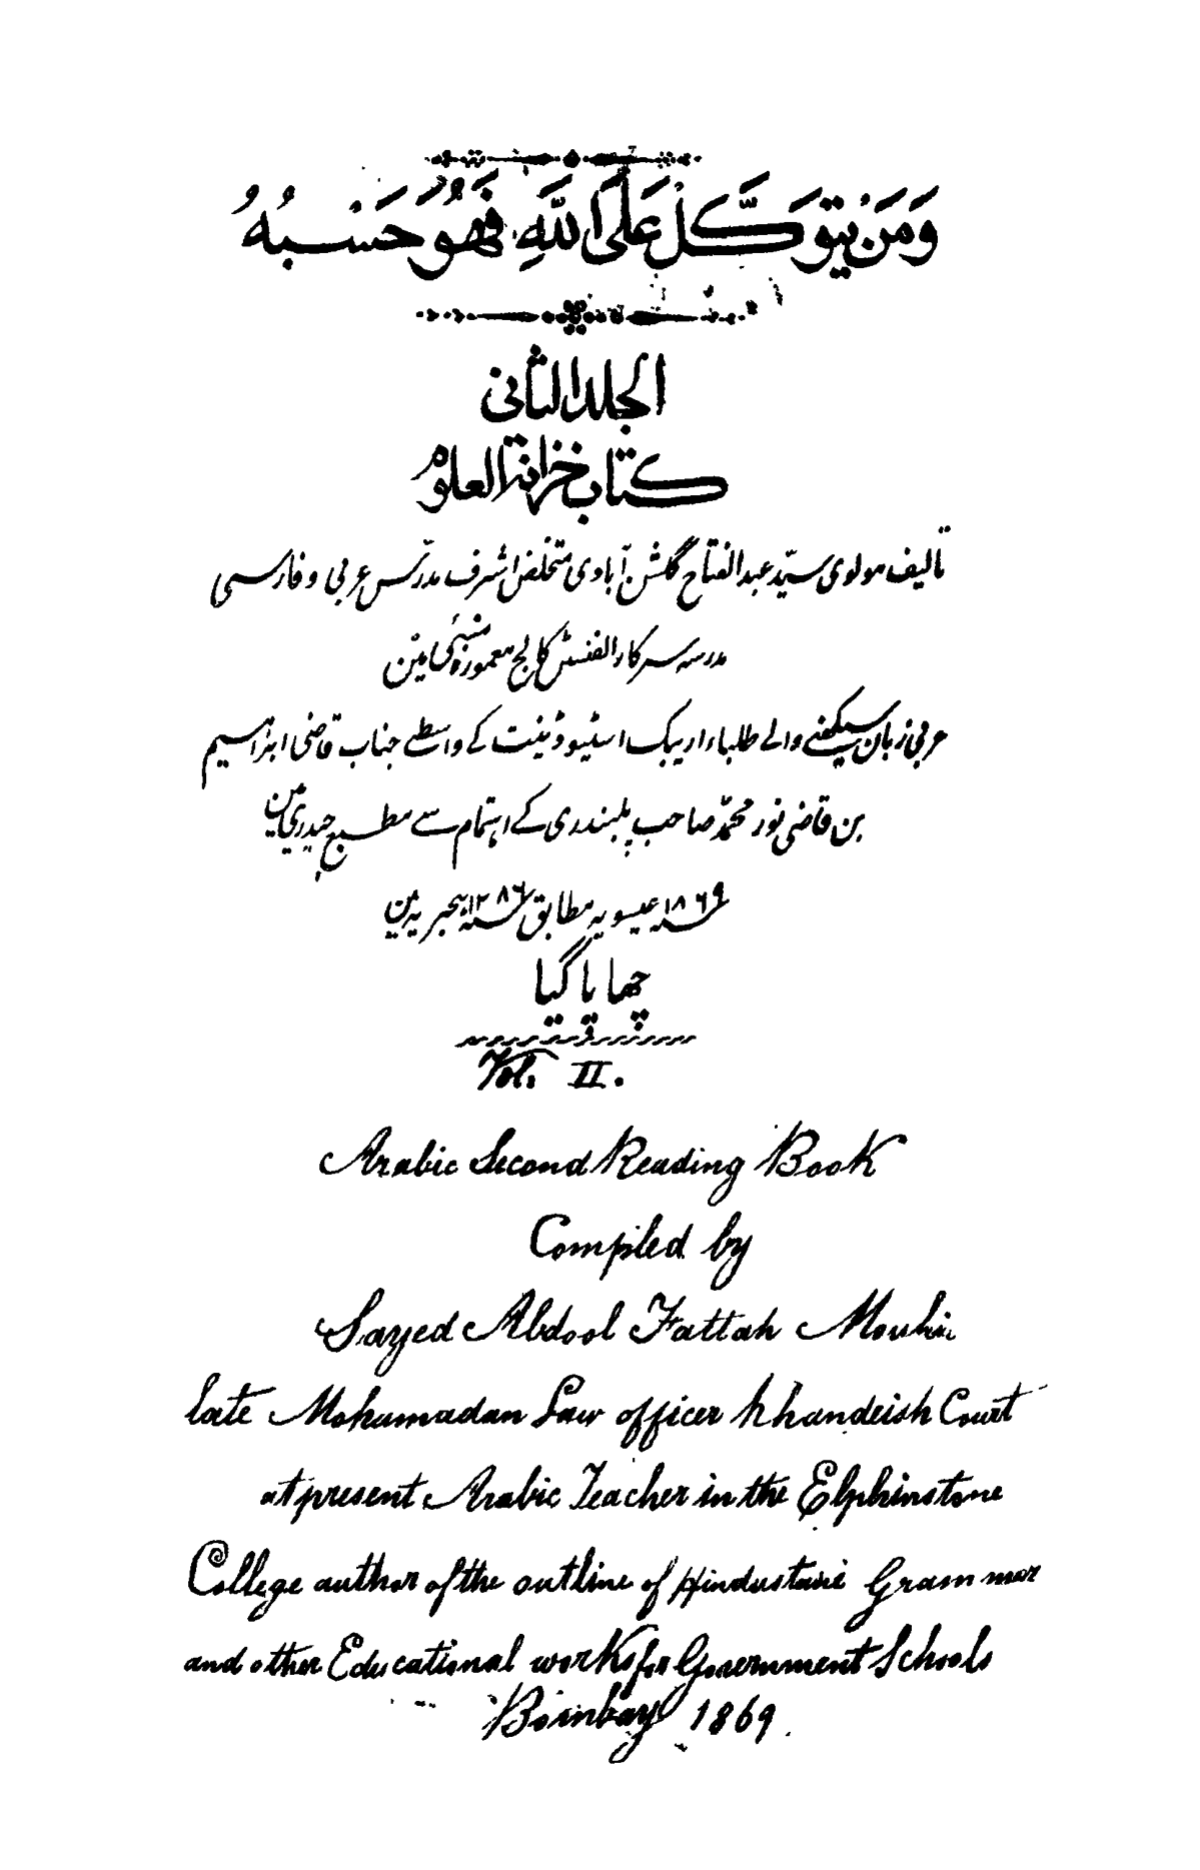 وَمَنْ يَتَوَكَّلْ عَلَى اللَّهِ فَهُوَ حَسْبُهُ
الجلد الثاني
كتاب خزانة العلوم
تالیف مولوی سیّد عبد الفتاح گلشن آبادی متخلص اشرف مدرّس عربی و فارسی
مدرسہ سرکار الفنسٹن کالج معمورہ بمبئی مین
عربی زبان سیکھنے والے طلباء اریبک اسٹیوڈینٹ کے واسطے جناب قاضی ابراہیم
بن قاضی نور محمّد صاحب پلبندری کے اہتمام سے مطبع حیدری مین
سنہ ۱۸۶۹ عیسویہ مطابق سنہ ۱۲۸۶ ہجریہ مین
چھاپا گیا
Vol. II.
Arabic Second Reading Book
Compiled by
Sayed Abdool Fattah
late Mohamadan Law officer Khandeish Court
at present Arabic Teacher in the Elphinstone
College author of the outline of Hindustani Grammar
and other Educational works for Government Schools
Bombay 1869.